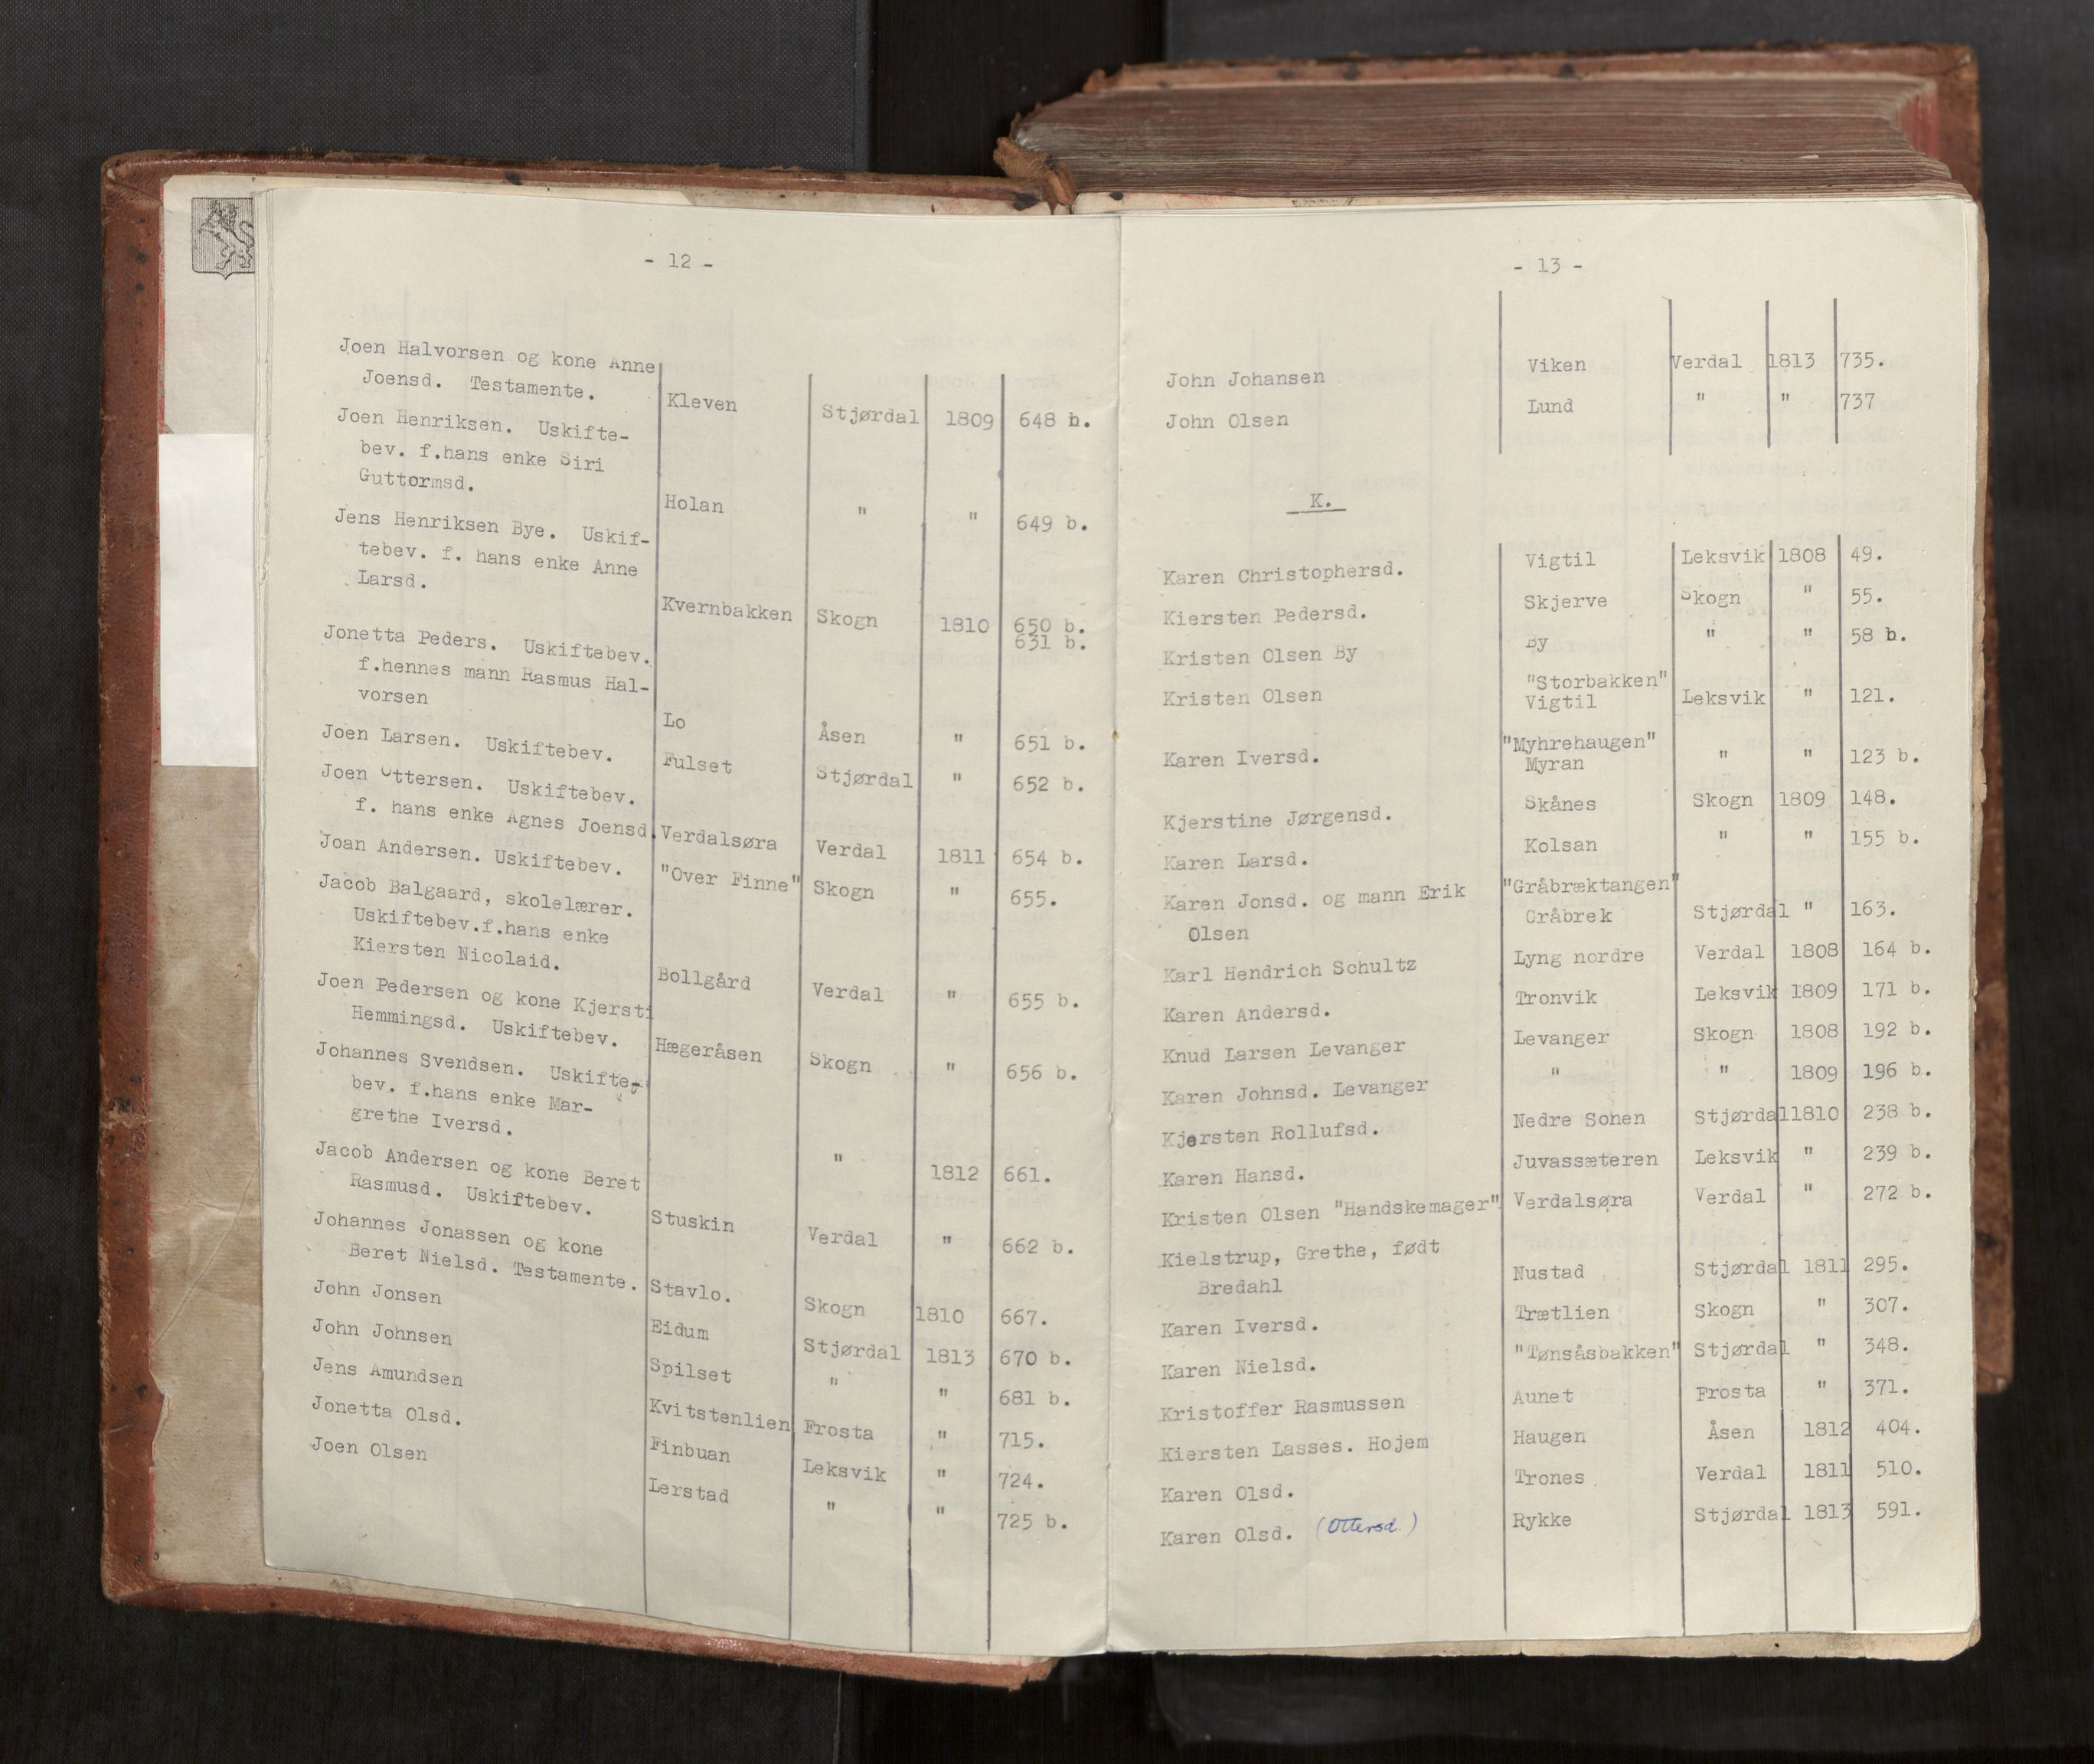 - 12 -
Joen Halvorsen og kone Anne
Joensd. Testamente. Kleven Stjørdal 1809 648 b.
Joen Henriksen. Uskifte-
bev. f.hans enke Siri
Guttormsd. Holan " " 649 b.
Jens Henriksen Bye. Uskif-
tebev. f. hans enke Anne
Larsd. Kvernbakken Skogn 1810 650 b.
631 b.
Jonetta Peders. Uskiftebev.
f.hennes mann Rasmus Hal-
vorsen Lo Åsen " 651 b.
Joen Larsen. Uskiftebev. Fulset Stjørdal " 652 b.
Joen Ottersen. Uskiftebev.
f. hans enke Agnes Joensd. Verdalsøra Verdal 1811 654 b.
Joan Andersen. Uskiftebev. "Over Finne" Skogn " 655.
Jacob Balgaard, skolelærer.
Uskiftebev.f.hans enke
Kiersten Nicolaid. Bollgård Verdal " 655 b.
Joen Pedersen og kone Kjersti
Hemmingsd. Uskiftebev. Hægeråsen Skogn " 656 b.
Johannes Svendsen. Uskifte-
bev. f.hans enke Mar-
grethe Iversd. " 1812 661.
Jacob Andersen og kone Beret
Rasmusd. Uskiftebev. Stuskin Verdal " 662 b.
Johannes Jonassen og kone
Beret Nielsd. Testamente. Stavlo. Skogn 1810 667.
John Jonsen Eidum Stjørdal 1813 670 b.
John Johnsen Spilset " " 681 b.
Jens Amundsen Kvitstenlien Frosta " 715.
Jonetta Olsd. Finbuan Leksvik " 724.
Joen Olsen Lerstad " " 725 b.
- 13 -
John Johansen Viken Verdal 1813 735.
John Olsen Lund " " 737
K.
Karen Christophersd. Vigtil Leksvik 1808 49.
Kiersten Pedersd. Skjerve Skogn " 55.
Kristen Olsen By By " " 58 b.
"Storbakken"
Kristen Olsen Vigtil Leksvik " 121.
"Myhrehaugen"
Karen Iversd. Myran " " 123 b.
Kjerstine Jørgensd. Skånes Skogn 1809 148.
Karen Larsd. Kolsan " " 155 b.
Karen Jonsd. og mann Erik "Gråbræktangen"
Olsen Cråbrek Stjørdal " 163.
Karl Hendrich Schultz Lyng nordre Verdal 1808 164 b.
Karen Andersd. Tronvik Leksvik 1809 171 b.
Knud Larsen Levanger Levanger Skogn 1808 192 b.
Karen Johnsd. Levanger " " 1809 196 b.
Kjersten Rollufsd. Nedre Sonen Stjørdal 1810 238 b.
Karen Hansd. Juvassæteren Leksvik " 239 b.
Kristen Olsen "Handskemager" Verdalsøra Verdal " 272 b.
Kielstrup, Grethe, født
Bredahl Nustad Stjørdal 1811 295.
Karen Iversd. Trætlien Skogn " 307.
Karen Nielsd. "Tønsåsbakken" Stjørdal " 348.
Kristoffer Rasmussen Aunet Frosta " 371.
Kiersten Lasses. Hojem Haugen Åsen 1812 404.
Karen Olsd. Trones Verdal 1811 510.
Karen Olsd. (Ottersd.) Rykke Stjørdal 1813 591.